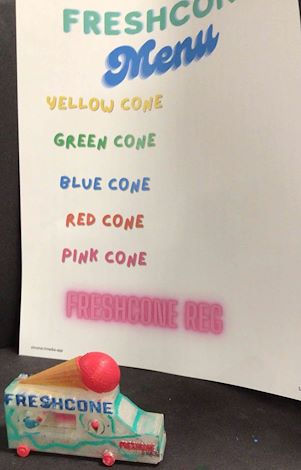 FRESHCON
Menu
YELLOW CONE
GREEN CONE
BLUE CONE
RED CONE
PINK CONE
FRESHCONE REG
FRESHCONE
FRESHCONE